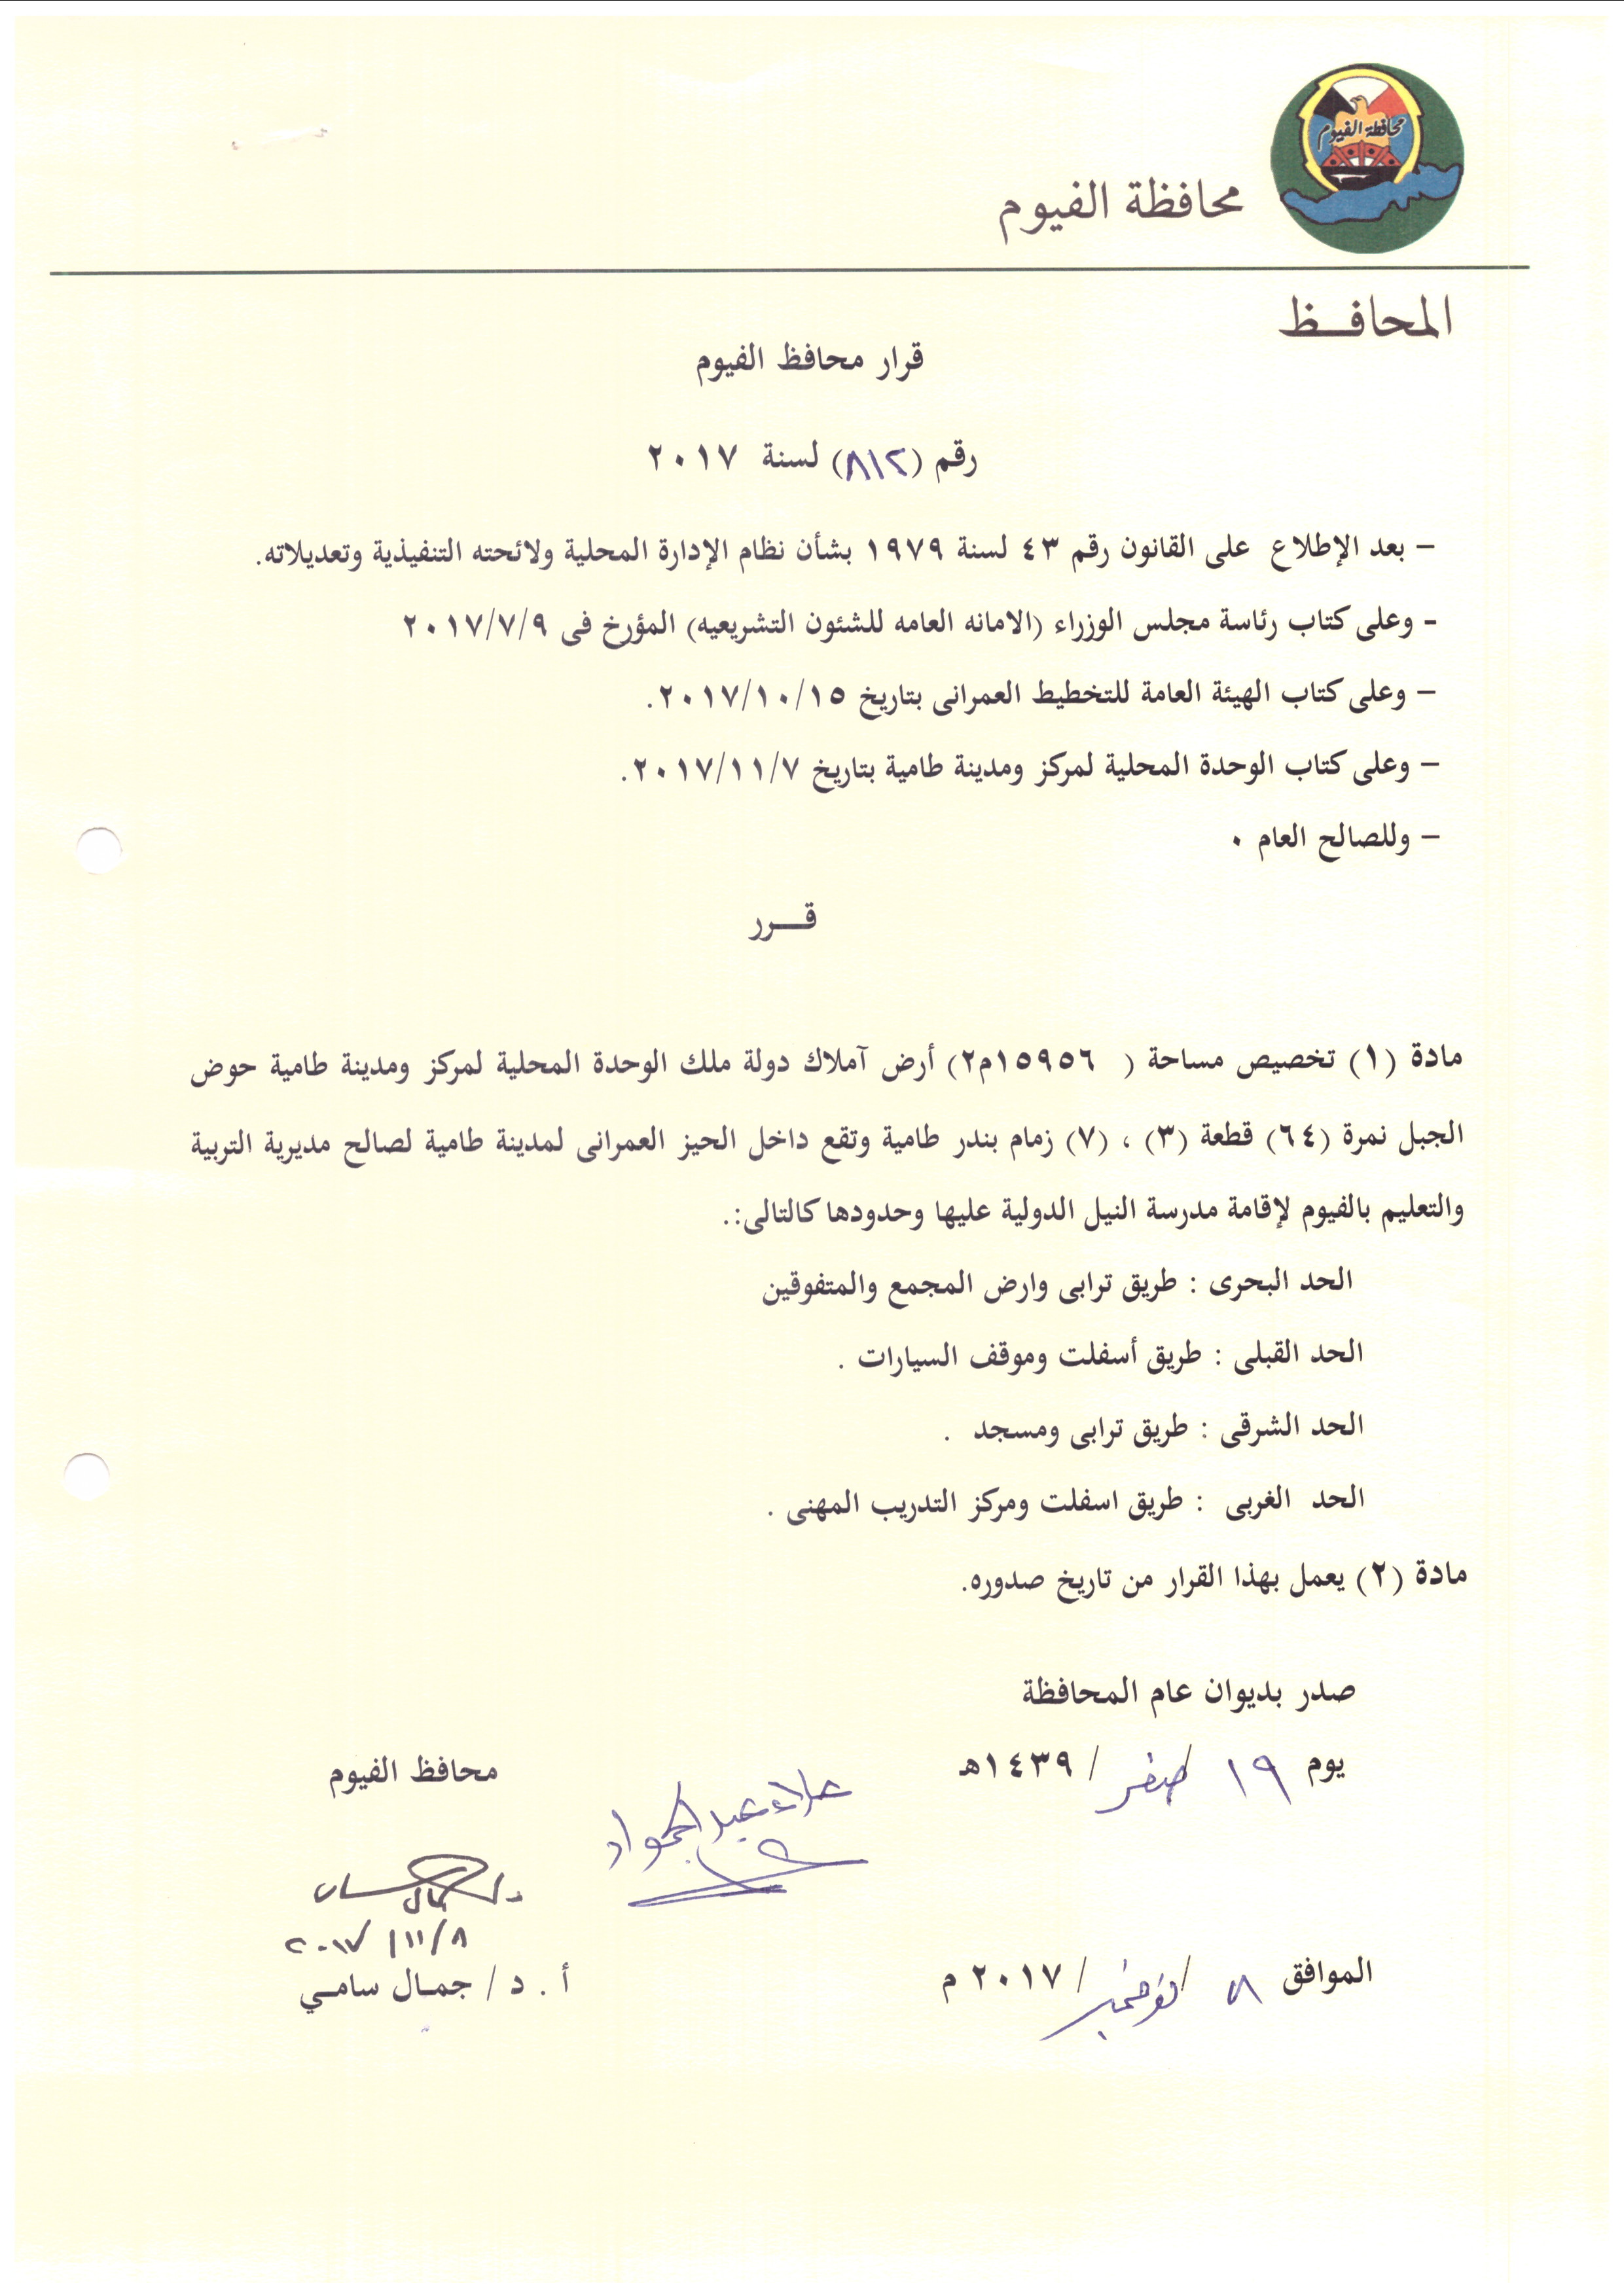 محافظة الفيوم
محافظة الفيوم
المحافـــظ
قرار محافظ الفيوم
رقم (٨١٢) لسنة ٢٠١٧
– بعد الإطلاع على القانون رقم ٤٣ لسنة ١٩٧٩ بشأن نظام الإدارة المحلية ولائحته التنفيذية وتعديلاته.
- وعلى كتاب رئاسة مجلس الوزراء (الامانه العامه للشئون التشريعيه) المؤرخ فى ٢٠١٧/٧/٩
– وعلى كتاب الهيئة العامة للتخطيط العمرانى بتاريخ ٢٠١٧/١٠/١٥.
– وعلى كتاب الوحدة المحلية لمركز ومدينة طامية بتاريخ ٢٠١٧/١١/٧.
– وللصالح العام ٠
قــــرر
مادة (١) تخصيص مساحة ( ١٥٩٥٦م٢) أرض آملاك دولة ملك الوحدة المحلية لمركز ومدينة طامية حوض
الجبل نمرة (٦٤) قطعة (٣) ، (٧) زمام بندر طامية وتقع داخل الحيز العمرانى لمدينة طامية لصالح مديرية التربية
والتعليم بالفيوم لإقامة مدرسة النيل الدولية عليها وحدودها كالتالى:.
الحد البحرى : طريق ترابى وارض المجمع والمتفوقين
الحد القبلى : طريق أسفلت وموقف السيارات .
الحد الشرقى : طريق ترابى ومسجد .
الحد الغربى : طريق اسفلت ومركز التدريب المهنى .
مادة (٢) يعمل بهذا القرار من تاريخ صدوره.
صدر بديوان عام المحافظة
يوم ١٩ / صفر / ١٤٣٩هـ
محافظ الفيوم
علاء عبد الجواد
٢٠١٧/١١/٨
الموافق ٨ / نوفمبر / ٢٠١٧ م
أ . د / جمـال سامـي